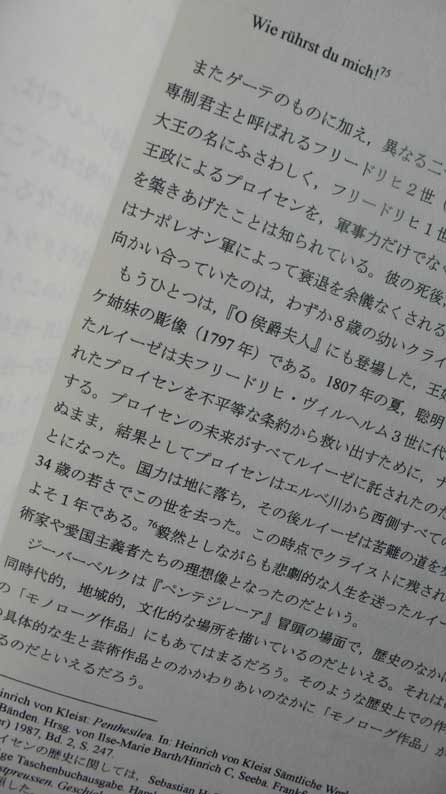 Wie rührst du mich!75
またゲーテのものに加え，異なる二
専制君主と呼ばれるフリードリヒ2世（
大王の名にふさわしく，フリードリヒ1世
王政によるプロイセンを，軍事力だけでな
を築きあげたことは知られている。彼の死後，
はナポレオン軍によって衰退を余儀なくされる
向かい合っていたのは，わずか8歳の幼いクライ
もうひとつは，『O侯爵夫人』にも登場した，王
ケ姉妹の彫像（1797年）である。1807年の夏，聡明
たルイーゼは夫フリードリヒ・ヴィルヘルム3世に代
れたプロイセンを不平等な条約から救い出すために，ナ
する。プロイセンの未来がすべてルイーゼに託されたのだ
ぬまま，結果としてプロイセンはエルベ川から西側すべての
とになった。国力は地に落ち，その後ルイーゼは苦難の道を
34歳の若さでこの世を去った。この時点でクライストに残され
よそ1年である。76毅然としながらも悲劇的な人生を送ったルイー
術家や愛国主義者たちの理想像となったのだという。
ジーバーベルクは『ペンテジレーア』冒頭の場面で，歴史のなか
同時代的，地域的，文化的な場所を描いているのだといえる。それは
の「モノローグ作品」にもあてはまるだろう。そのような歴史上での作
具体的な生と芸術作品とのかかわりあいのなかに「モノローグ作品」が
るのだといえるだろう。
inrich von Kleist: Penthesilea. In: Heinrich von Kleist Sämtliche Werk
Bänden. Hrsg. von Ilse-Marie Barth/Hinrich C, Seeba. Frankf
er) 1987, Bd. 2, S. 247.
イセンの歴史に関しては，Sebastian H
ige Taschenbuchausgabe. Ham
stpreussen. Geschich